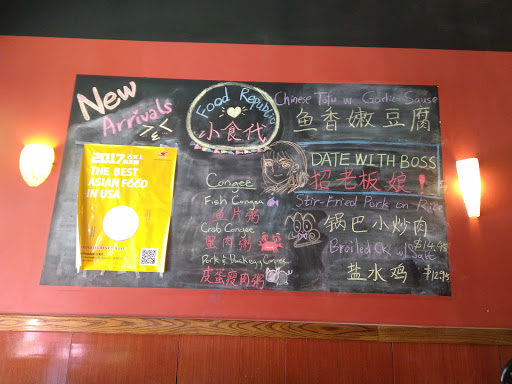 New
Arrivals
Food Republic
小食代
2017
THE BEST
ASIAN FOOD
IN USA
Congee
Fish Congee
鱼片粥
Crab Congee
蟹肉粥
Pork & Duck egg Congee
皮蛋瘦肉粥
Chinese Tofu w Garlic Sause
鱼香嫩豆腐
DATE WITH BOSS
招老板娘!
Stir-Fried Pork on Rice
锅巴小炒肉
$14.95
Broiled Ck w/ Salt
盐水鸡 $12.95